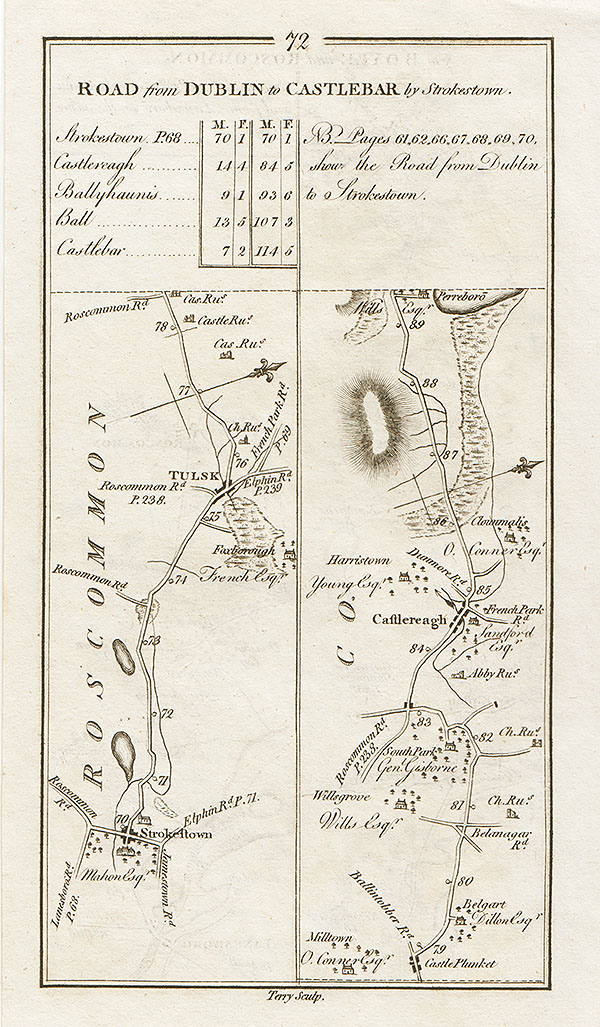 72
ROAD from DUBLIN to CASTLEBAR by Strokestown.
M. F. M. F.
Strokestown. P.68 .... 70 1 70 1
Castlereagh ........ 14 4 84 5
Ballyhaunis ........ 9 1 93 6
Ball ............... 13 5 107 3
Castlebar .......... 7 2 114 5
NB. Pages 61, 62, 66, 67, 68, 69, 70,
show the Road from Dublin
to Strokestown.
Roscommon Rd
Cas. Ru.s
78
Castle Ru.s
Cas. Ru.s
77
Ch. Ru.s
French Park Rd
P. 69
76
TULSK
Elphin Rd
P. 239
Roscommon Rd
P. 238.
75
Foxborough
French Esq.r
74
Roscommon Rd
73
ROSCOMMON
72
71
Elphin Rd P. 71.
Roscommon
Rd
70
Strokestown
Mahon Esq.r
Lanesboro Rd
P. 68.
Jamestown Rd
Wills Esq.r
Perreboro
89
88
87
86
Clounmalis
O. Conner Esq.r
Harristown
Young Esq.r
Dunmore Rd
85
French Park
Rd
Castlereagh
Sandford
Esq.r
CO.
84
Abby Ru.s
83
Roscommon Rd
P. 238.
82
Ch. Ru.s
South Park
Gen. Gisborne
Willsgrove
Wills Esq.r
81
Ch. Ru.s
Belanagar
Rd
80
Ballintobber Rd
Belgart
Dillon Esq.r
79
Milltown
O. Conner Esq.r
Castle Plunket
Terry Sculp.